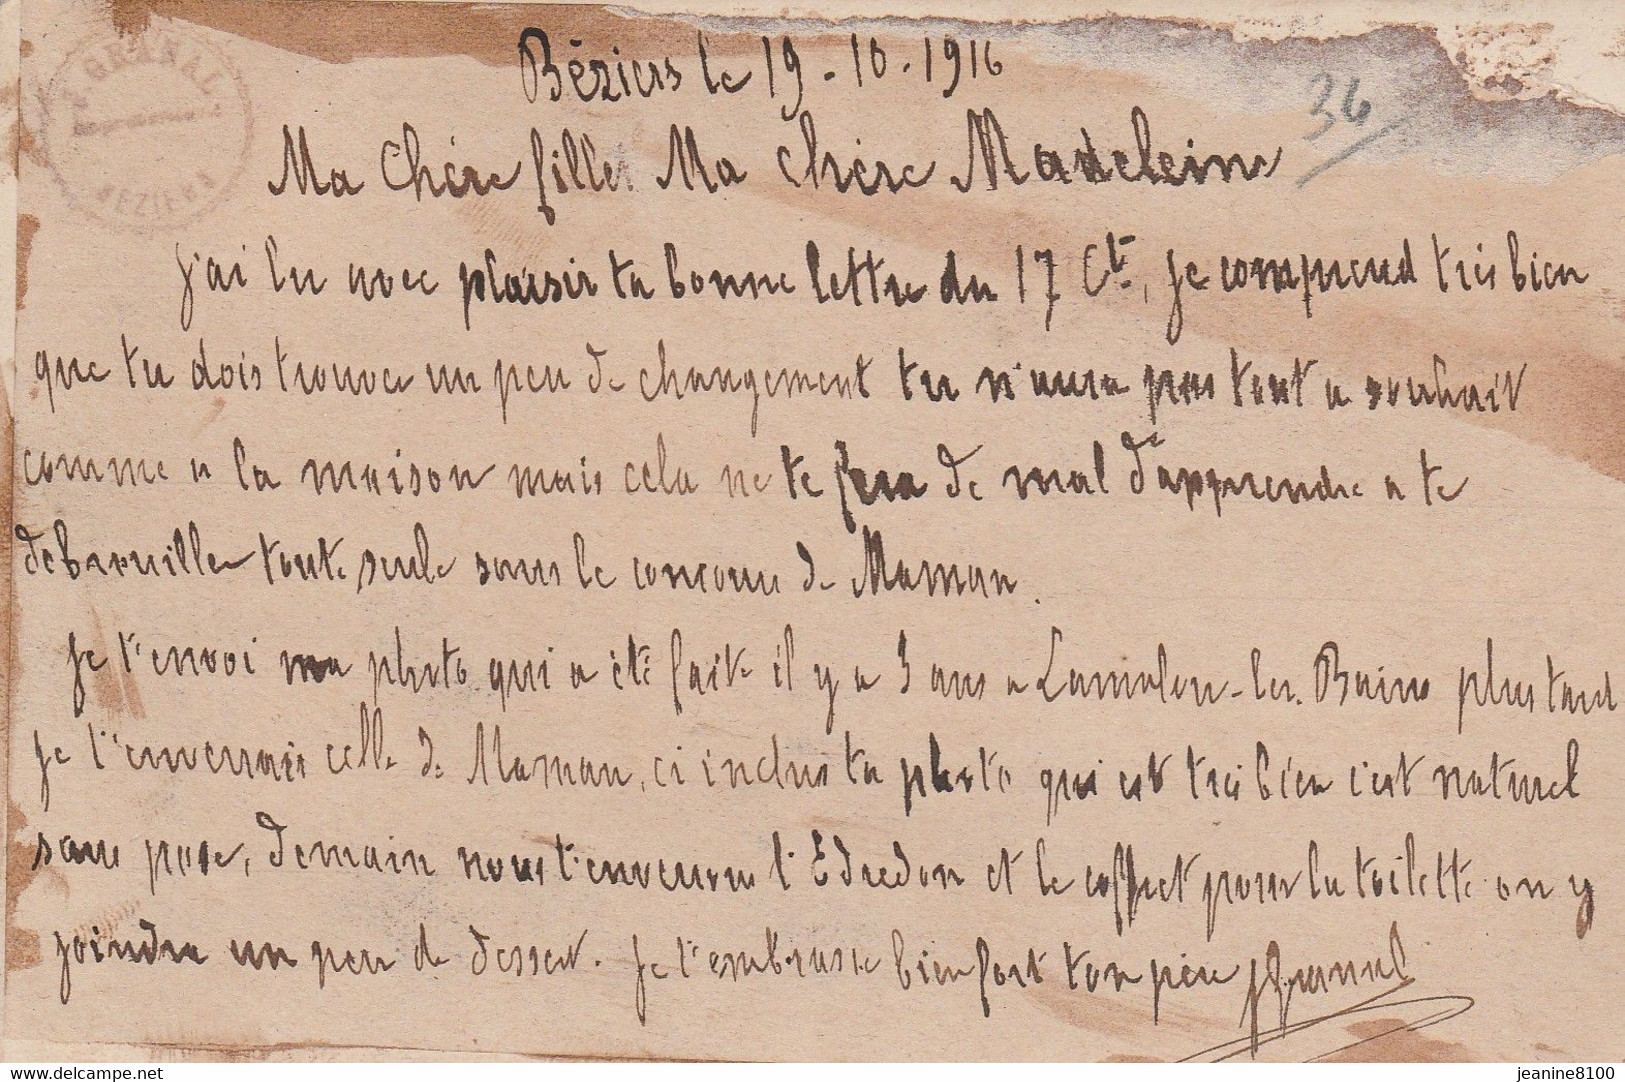 J. GRANAL
BÉZIERS
Béziers le 19-10-1916
34
Ma Chére fille Ma chère Madeleine
J'ai lu avec plaisir ta bonne lettre du 17 Ct, je comprend très bien
que tu dois trouver un peu de changement tu n'aura pas tout a souhait
comme a la maison mais cela ne te fera de mal d'apprendre a te
debrouiller toute seule sans le concour de Maman.
Je t'envoi ma photo qui a été faite il y a 3 ans a Lamalou-les-Bains plus tard
je t'enverrais celle de Maman, ci inclus ta photo qui est très bien c'est naturel
sans pose, demain nous t'enverrons l'Edredon et le coffret pour la toilette on y
joindra un peu de dessert. Je t'embrasse bien fort ton père JGranal
delcampe.net
jeanine8100